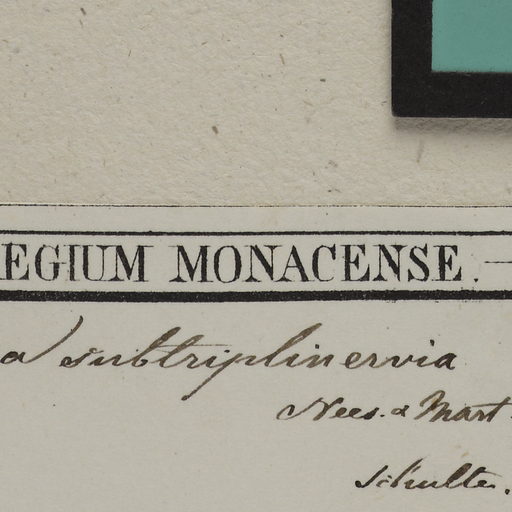 EGIUM MONACENSE.
a subtriplinervia
Nees. & Mart.
Schultes.